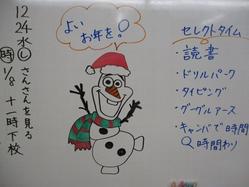 12
24
水
し
時
さんさんを見る
1/8 十一時下校
よい
お年を!
セレクトタイム
・読書
・ドリルパーク
・タイピング
・グーグルアース
・キャンバで時間
時間わり